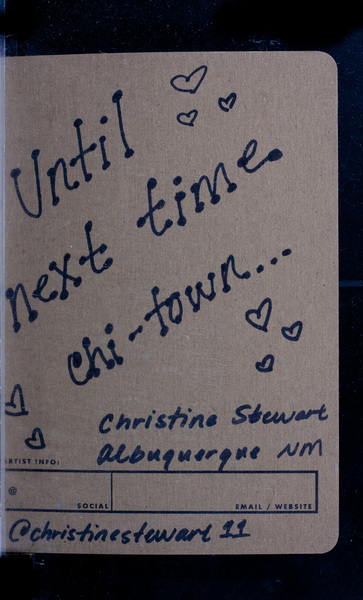 Until
next time.
chi-town...
Christine Stewart
Albuquerque NM
ARTIST INFO:
@
SOCIAL
EMAIL / WEBSITE
@christinestewart 11